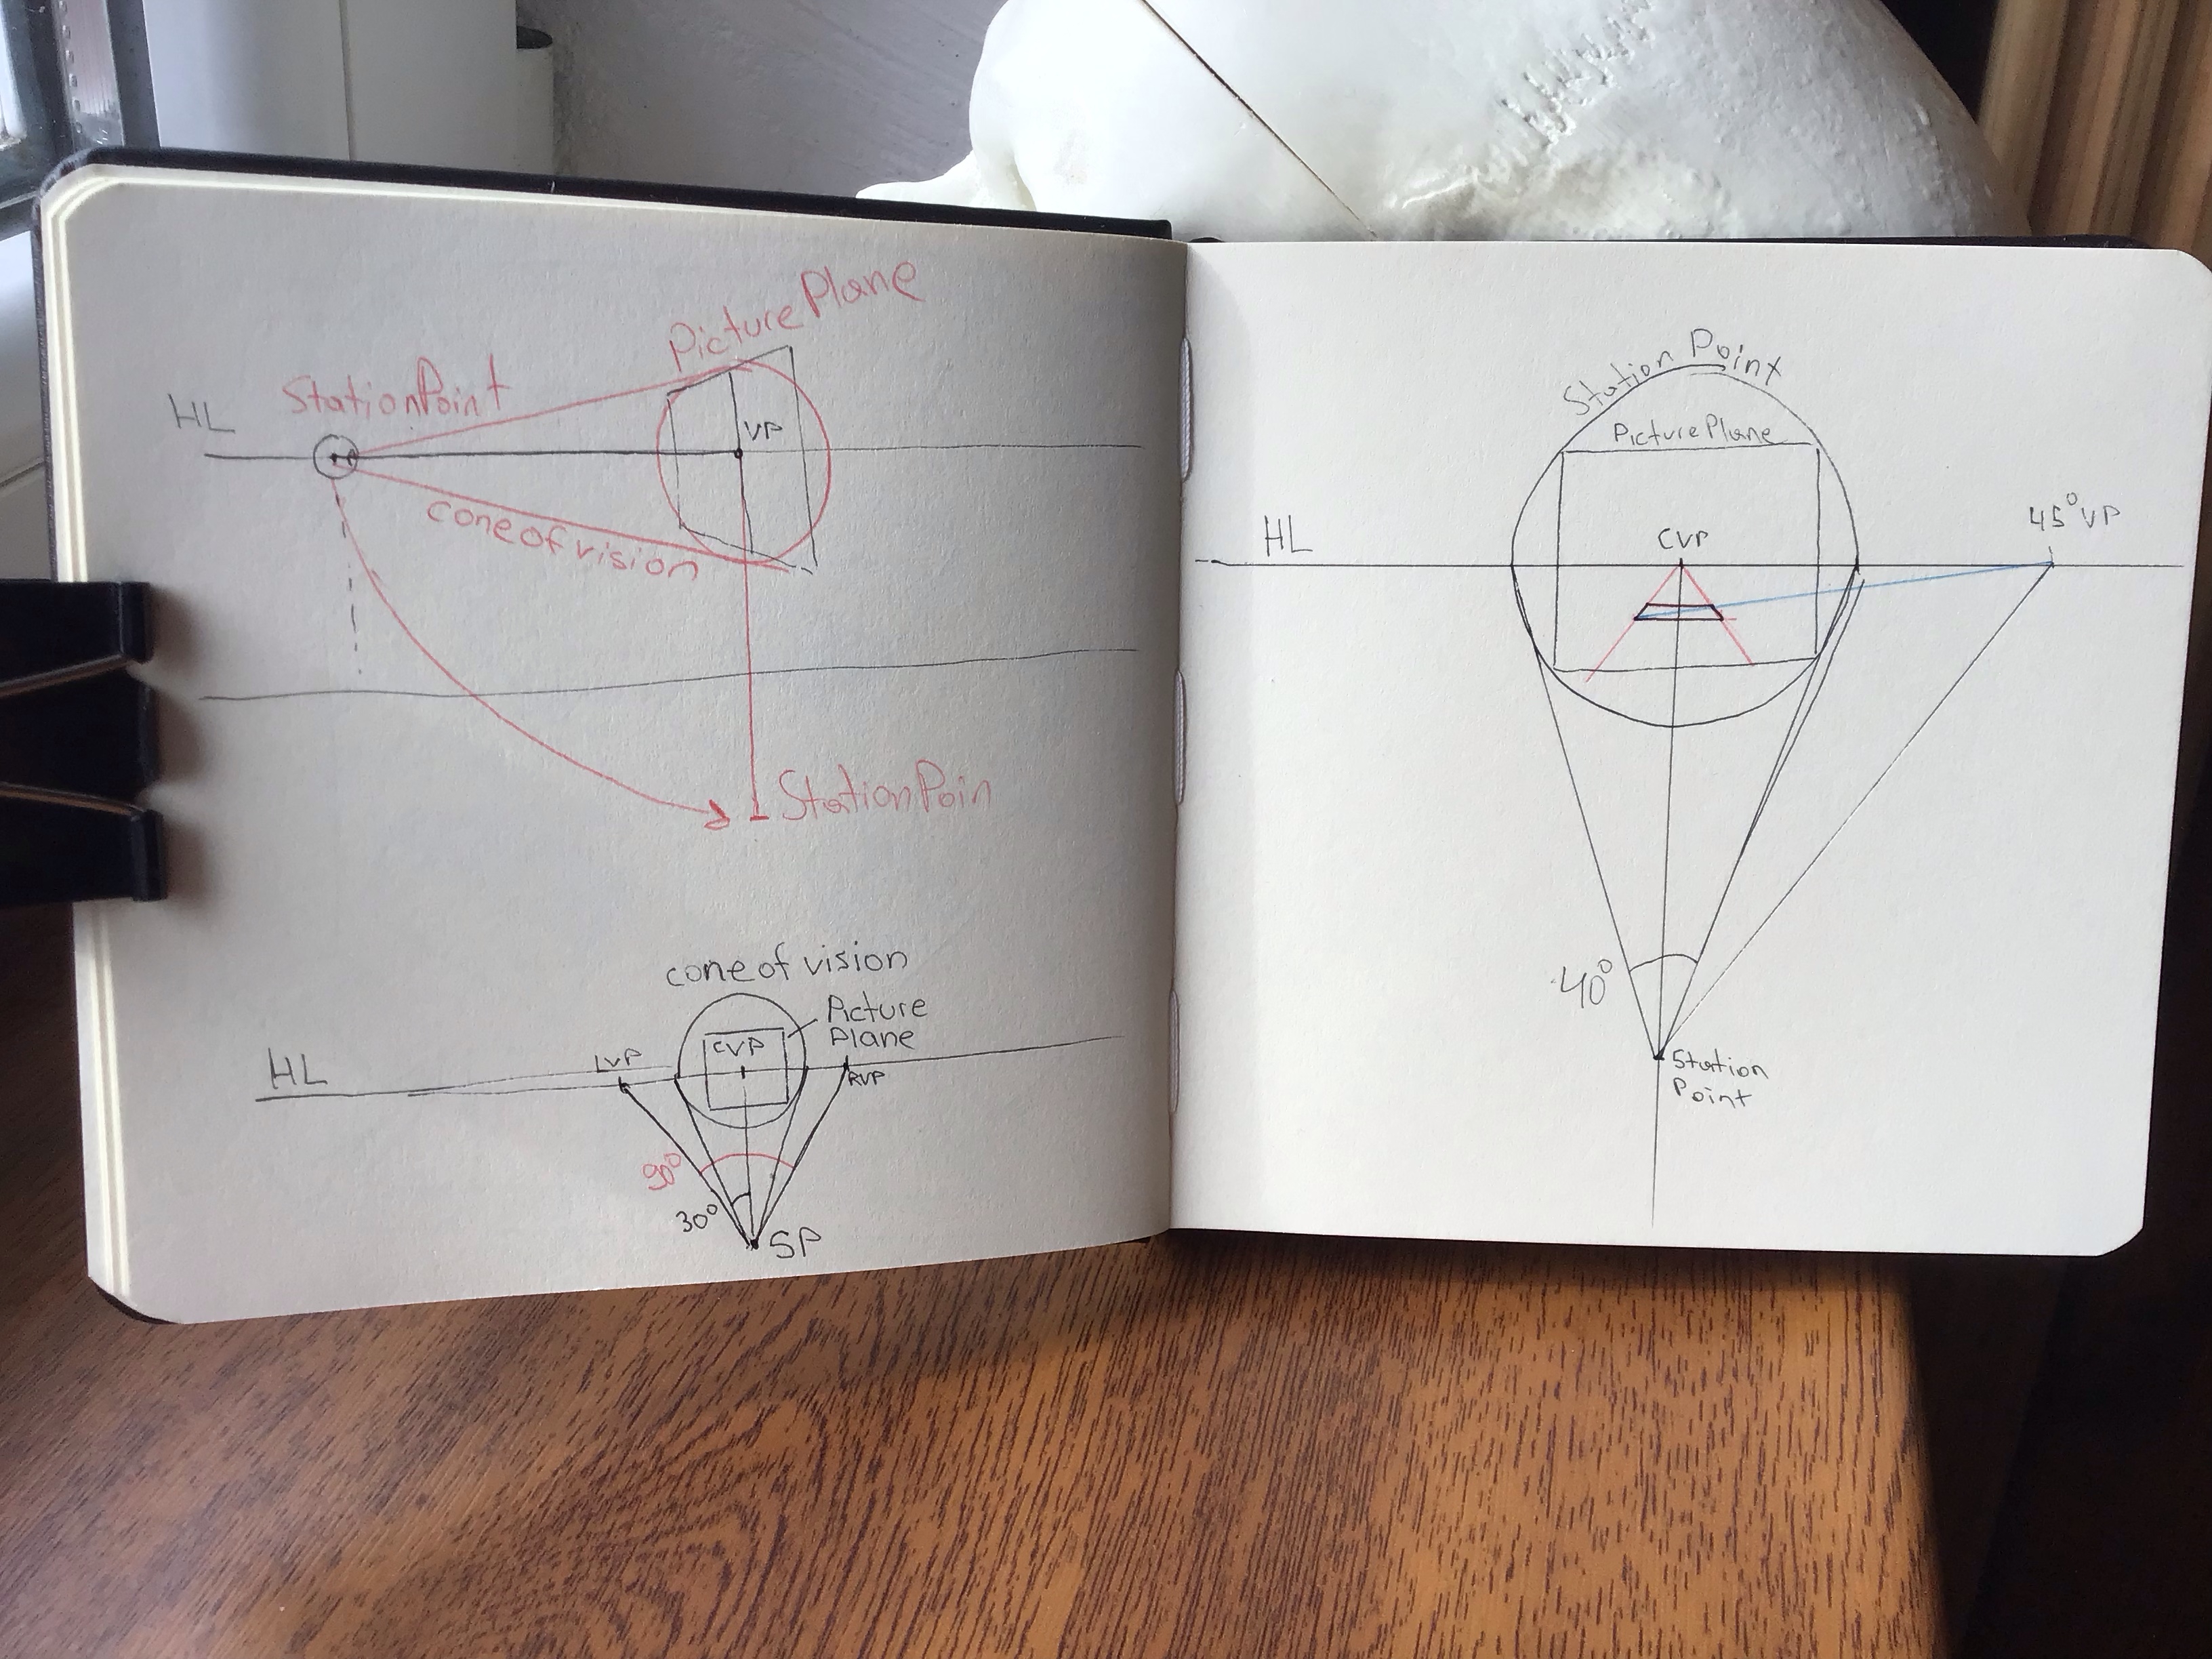 Picture Plane
Station Point
HL
VP
cone of vision
Station Poin
cone of vision
Picture
Plane
LVP
CVP
HL
RVP
90°
30°
SP
Station Point
Picture Plane
45° VP
HL
CVP
40°
Station
Point